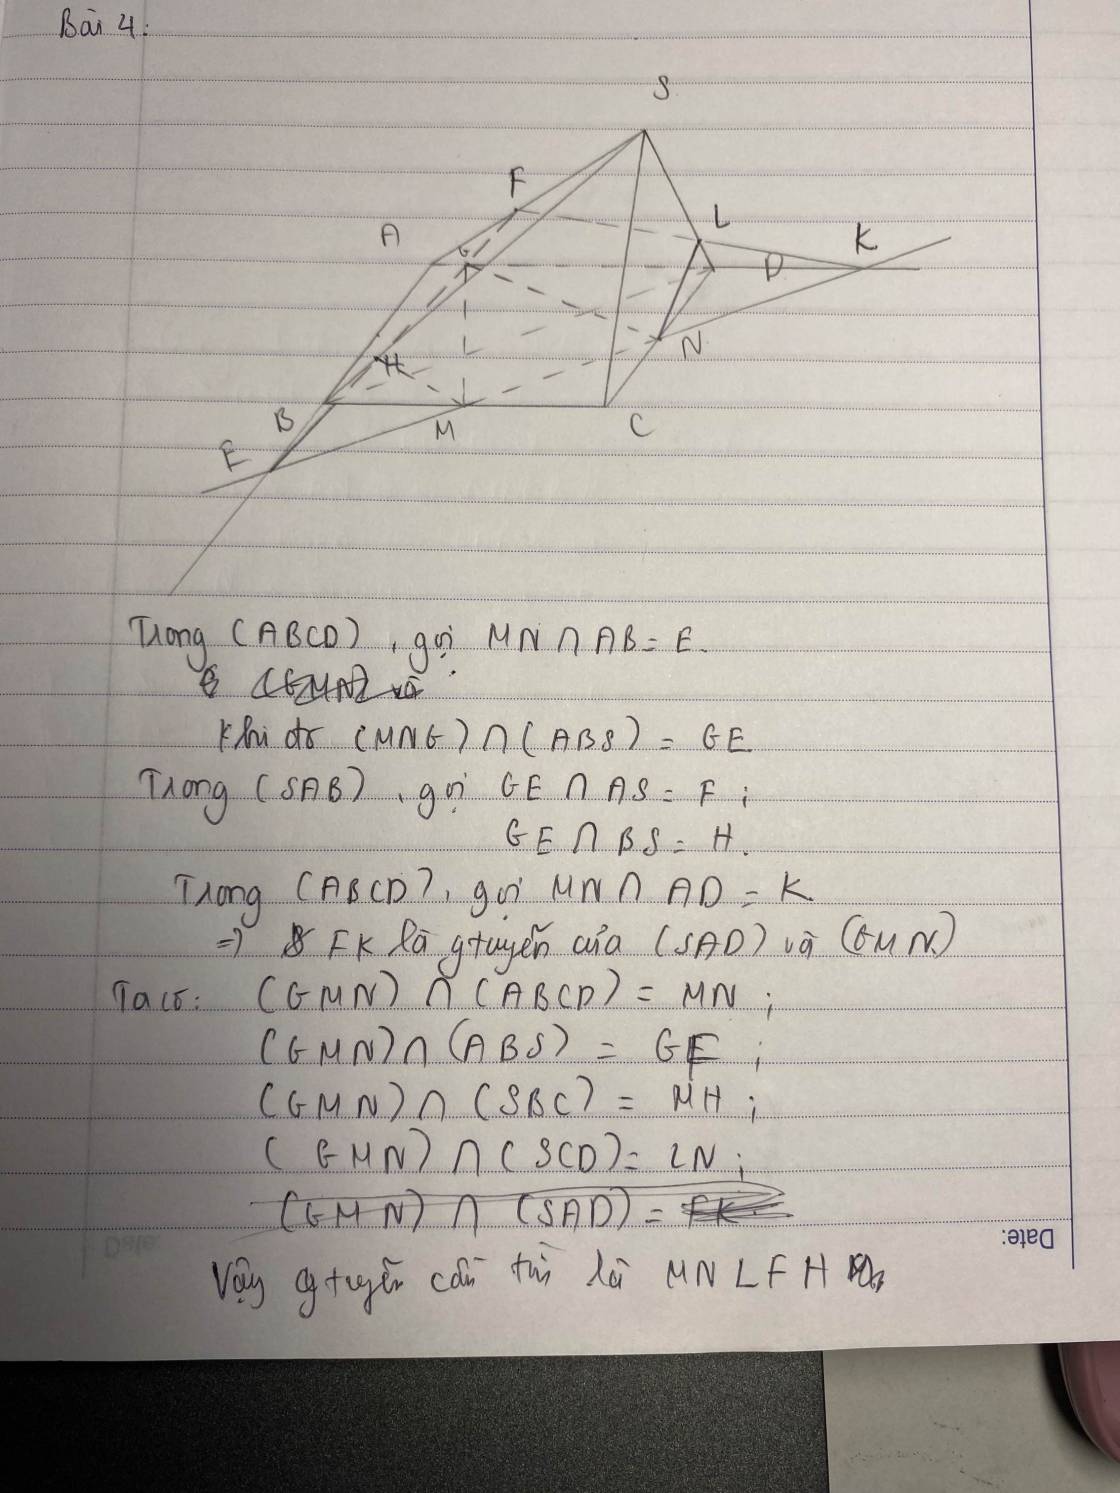 Bài 4:
S
F
A
G
L
K
D
H
N
B
M
C
E
Trong (ABCD), gọi MN ∩ AB = E.
(GMN) và
Khi đó (MNG) ∩ (ABS) = GE
Trong (SAB), gọi GE ∩ AS = F ;
GE ∩ BS = H.
Trong (ABCD), gọi MN ∩ AD = K
=> FK là gtuyến của (SAD) và (GMN)
Ta có: (GMN) ∩ (ABCD) = MN ;
(GMN) ∩ (ABS) = GF ;
(GMN) ∩ (SBC) = MH ;
(GMN) ∩ (SCD) = LN ;
(GMN) ∩ (SAD) = FK
Date:
Date:
Vậy gtuyến cần tìm là MNLFH